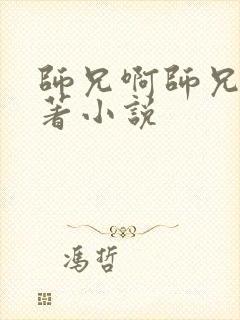 師兄啊師兄
著小説
馮哲